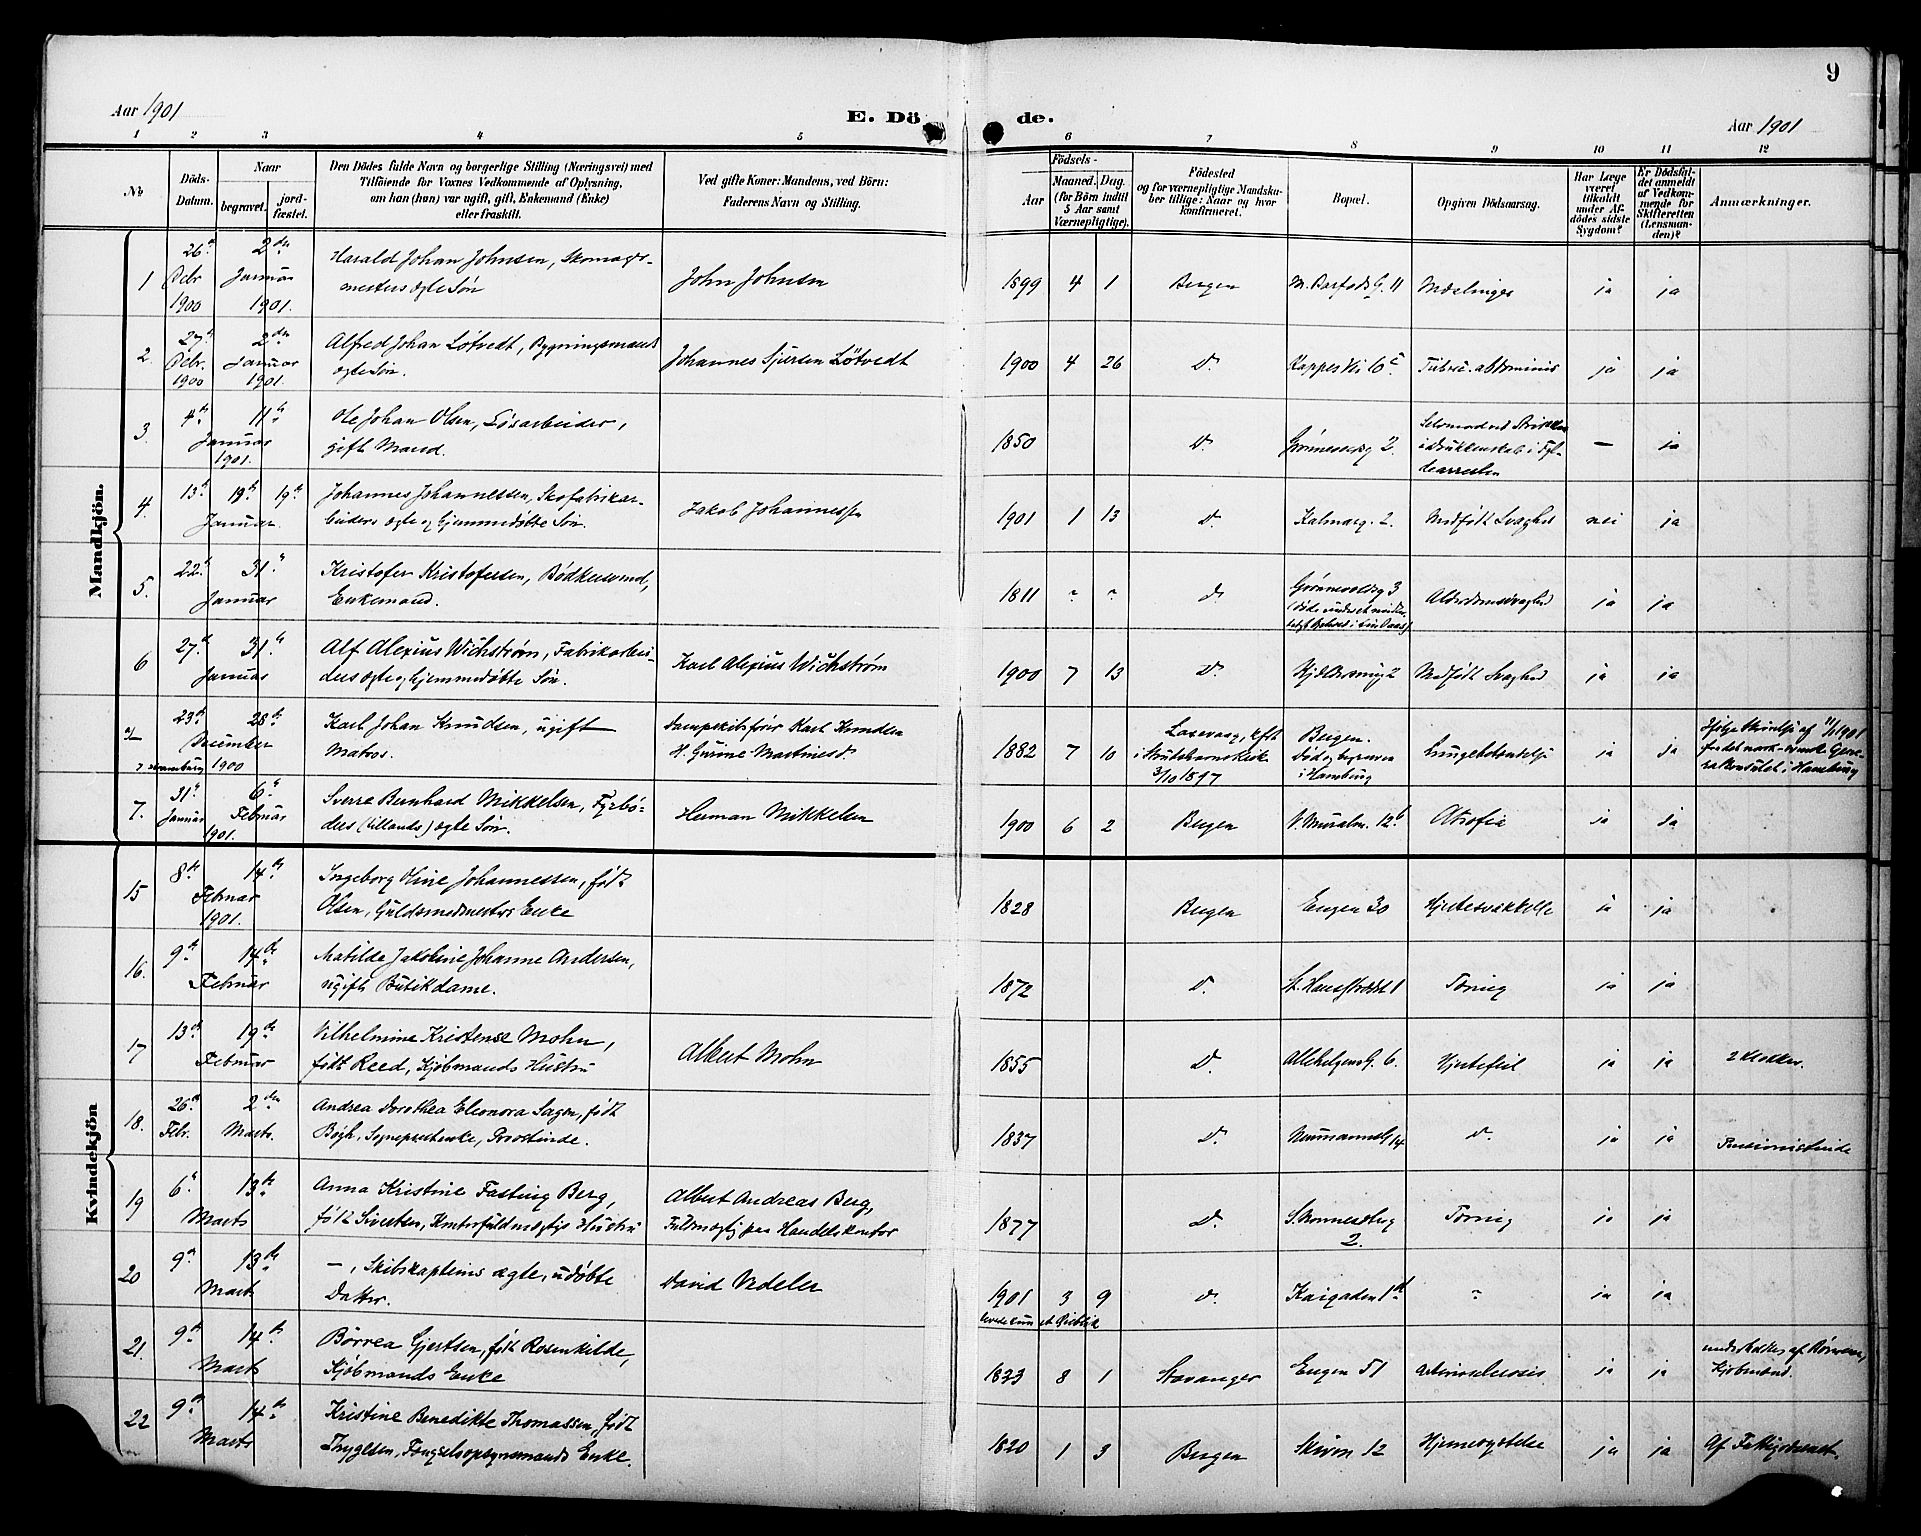 9
Aar 1901
E. Dö de.
Aar 1901
1 2 3 4 5 6 7 8 9 10 11 12
No
Döds-Datum.
Naar
begravet.
jord-fæstet.
Den Dödes fulde Navn og borgerlige Stilling (Næringsvei) med
Tilföiende for Voxnes Vedkommende af Oplysning,
om han (hun) var ugift, gift, Enkemand (Enke)
eller fraskilt.
Ved gifte Koner: Mandens, ved Börn:
Faderens Navn og Stilling.
Födsels-
Aar
Maaned. Dag.
(for Börn indtil
5 Aar samt
Værnepligtige).
Födested
og for værnepligtige Mandska-
ber tillige: Naar og hvor
konfirmeret.
Bopæl.
Opgiven Dödsaarsag.
Har Læge
været
tilkaldt
under Af-
dödes sidste
Sygdom?
Er Dödsfal-
det anmeldt
af Vedkom-
mende for
Skifteretten
(Lensman-
den)?
Anmærkninger.
Mandkjön.
1 26 Decbr 1900 2den Januar 1901. Harald Johan Johnsen, Skomager-
mesters ægte Søn John Johnsen 1899 4 1 Bergen M. Barfods G. 11 Mæslinger ja ja
2. 27 Decbr. 1900 2den Januar 1901. Alfred Johan Løtvedt, Bygningsmands
ægte Søn. Johannes Sjursen Løtvedt 1900 4 26 D. Tuberc. abdominis ja ja
3. 4 11 Januar 1901. Ole Johan Olsen, Løsarbeider,
gift Mand. 1850 D. 2. i Drukkenskab i Fyl-
dearresten — ja
4. 13 19 19 Januar. Johannes Johannessen, Skofabrikar-
beiders ægte og hjemmedøbte Søn. Jakob Johannessen 1901 1 13 D. Kalmarg. 2. Medfødt Svaghed nei ja
5. 22 31 Januar Kristofer Kristofersen, Bødkersvend,
Enkemand. 1811 " " D. Grønnevoldsg 3 Alderdomssvaghed ja ja
6 27. 31 Januar Alf Alexius Wichstrøm, Fabrikarbei-
ders ægte og hjemmedøbte Søn. Karl Alexius Wichstrøm 1900 7 13 D. 2 Medfødt Svaghed ja ja
23 28 December 1900 Hamburg Karl Johan Knudsen, ugift
Matros. Dampskibsfører Karl Knudsen
H. Gurine Martinesd. 1882 7 10 Laxevaag, kft
i Kirke
3/10 1897 Bergen.
Død og begraven
i Hamburg Lungebetændelse ja ja 11/1 1901
i Hamburg
7. 31 Januar 6 Februar 1901. Sverre Bernhard Mikkelsen, Fyrbø-
ders (tillands) ægte Søn. Herman Mikkelsen 1900 6 2 Bergen V. Muralm. 12b Atrofia ja ja
Kvindekjön
15 8 14 Februar 1901. Ingeborg Oline Johannessen, født
Olsen, Guldsmedmesters Enke 1828 Bergen Engen 30 Hjertesvækkelse ja ja
16. 9 14 Februar Matilde Jakobine Johanne Andersen,
ugift Butikdame. 1872 D. St. Hansstrædet 1 Tæring ja ja
17 13 19 Februar Vilhelmine Kristense Mohn,
født Reed, Kjøbmands Hustru Albert Mohn 1855 D. AllehelgensG. 6. Hjertefeil ja ja 2 Klokker.
18. 26 Febr. 2den Marts. Andrea Dorothea Eleonora Sagen, født
Bøgh, Sogneprestenke, Provstinde. 1837 D. NeumannsG 14 D. ja ja Pensionistinde
19 6 13 Marts Anna Kristine Fasting Berg,
født Sivertsen, Kontorfuldmægtigs Hustru Albert Andreas Berg,
Fuldmægtig paa Handelskontor 1877 D. 2. Tæring ja ja
20 9 13 Marts —, Skibskapteins ægte, udøbte
Datter. David Vedeler 1901 3 9
levede kun et Øieblik D. Kaigaden 1d " ja ja
21. 9 14 Marts Børrea Gjertsen, født Rosenkilde,
Kjøbmands Enke 1833 8 1 Stavanger Engen 51 Arteriosclerosis ja ja underholdtes af Børnene,
Kjøbmand.
22 9 14 Marts Kristine Benedikte Thomassen, født
Thygesen, Fængselsopsynsmands Enke. 1820 1 3 Bergen Skiven 12 Hjernerystelse ja ja Af Fattigvæsenet.